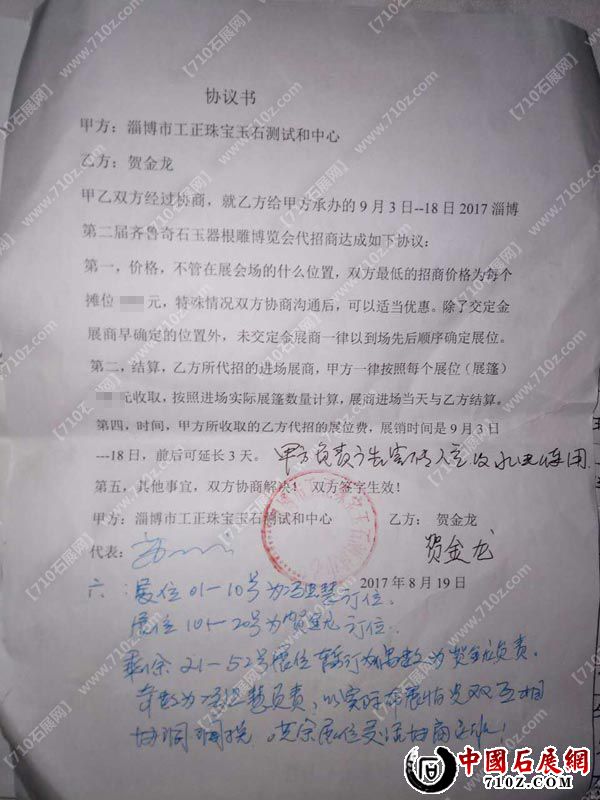 协议书
甲方：淄博市工正珠宝玉石测试和中心
乙方：贺金龙
甲乙双方经过协商，就乙方给甲方承办的9月3日--18日2017淄博
第二届齐鲁奇石玉器根雕博览会代招商达成如下协议：
第一，价格，不管在展会场的什么位置，双方最低的招商价格为每个
摊位 元，特殊情况双方协商沟通后，可以适当优惠。除了交定金
展商早确定的位置外，未交定金展商一律以到场先后顺序确定展位。
第二，结算，乙方所代招的进场展商，甲方一律按照每个展位（展篷）
元收取，按照进场实际展篷数量计算，展商进场当天与乙方结算。
第四，时间，甲方所收取的乙方代招的展位费，展销时间是9月3日
---18日，前后可延长3天。甲方负责
第五，其他事宜，双方协商解决！ 双方签字生效！
甲方：淄博市工正珠宝玉石测试和中心 乙方： 贺金龙
代表： 贺金龙
2017年8月19日
六 展位01—10号为 订位、
展位 20号为贺金龙订位、
剩余21—52号展位 为贺金龙负责。
负责，以实际 双互相
协调 ，其余展位灵活协商
【710石展网】
www.710z.com
中國石展網
710Z.COM